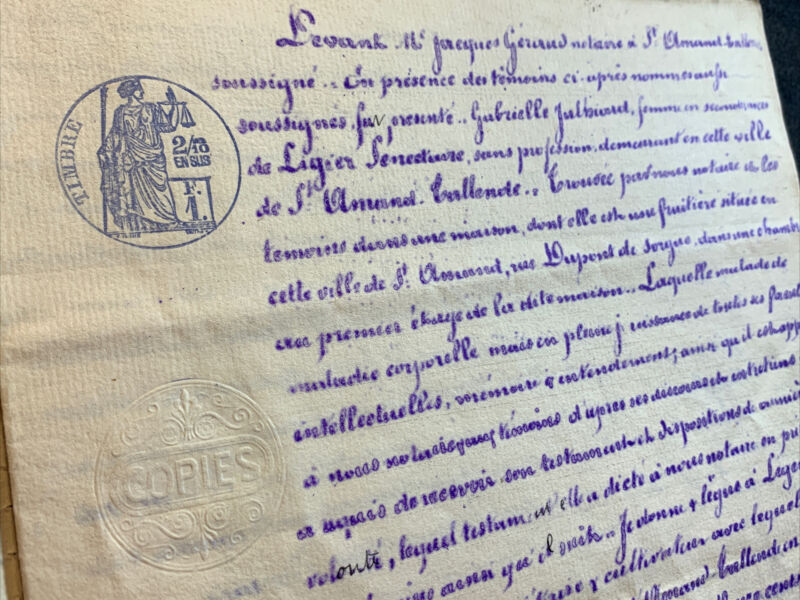 TIMBRE
2/10
EN SUS
F.
1.
COPIES
Devant Me Jacques Géraud notaire à St Amand-Tallende
soussigné.. En présence des témoins ci-après nommés aussi
soussignés, fut présente.. Gabrielle Julhiard, femme en secondes noces
de Ligier Senectaire, sans profession, demeurant en cette ville
de St Amand-Tallende.. Trouvée par nous notaire et les
témoins dans une maison, dont elle est une fruitière située en
cette ville de St Amand, rue Dupont de sorgue, dans une chambre
au premier étage de la dite maison.. Laquelle malade de
maladie corporelle mais en pleine jouissance de toutes ses facult
intellectuelles, mémoire & entendement; ainsi qu'il est app
à nous notaire & aux témoins d'après ses discours et entretiens
a requis de recevoir son testament et dispositions de dernière
volonté, lequel testament elle a dicté à nous notaire en pré
ainsi qu'il suit.. Je donne & lègue à Liger
& cultivateur avec lequel
Amand Tallende
cents